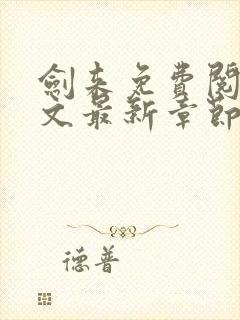 劍來免費閱
文最新章節
德普